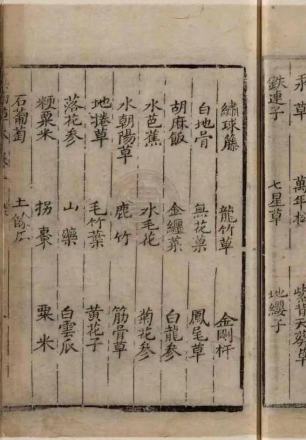 禾草 萬年松 紫背天葵草
鉄連子 七星草 地纓子
繡球籐 龍竹草 金剛杵
白地骨 無花菓 鳳尾草
胡麻飯 金纏菜 白龍參
水芭蕉 水毛花 菊花參
水朝陽草 鹿竹 筋骨草
地捲草 毛竹葉 黃花子
落花參 山藥 白雲瓜
粳粟米 拐棗 粟米
石葡萄 土餘瓜